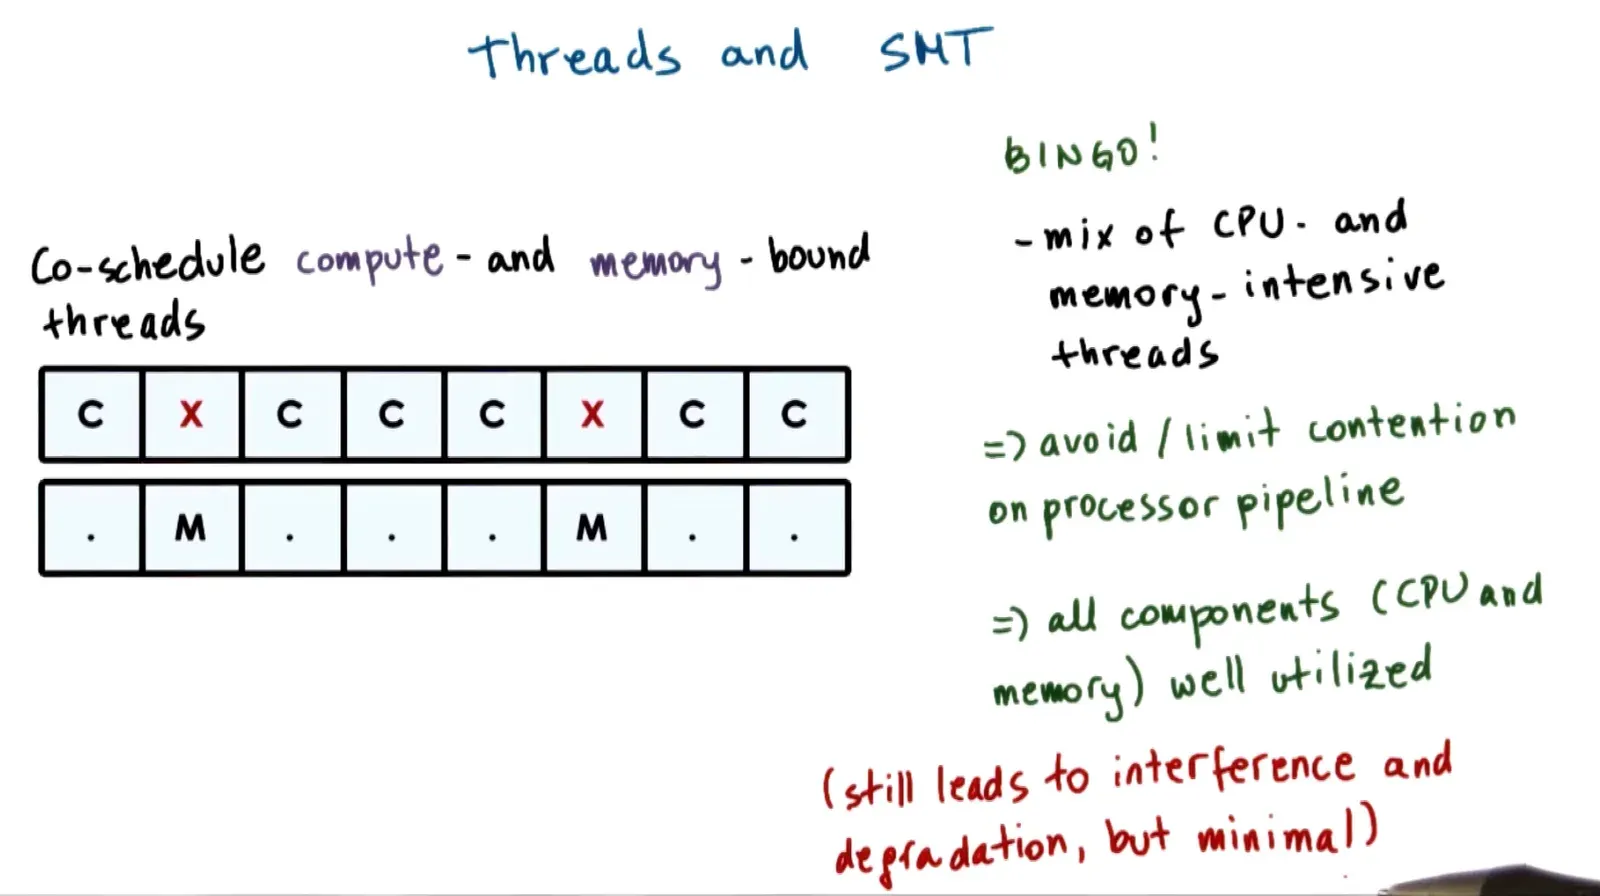 Threads and SMT
Co-schedule compute-and memory-bound
threads
C X C C C X C C
. M . . . M . .
BINGO!
- mix of CPU- and
memory-intensive
threads
=> avoid / limit contention
on processor pipeline
=> all components (CPU and
memory) well utilized
(still leads to interference and
degradation, but minimal)